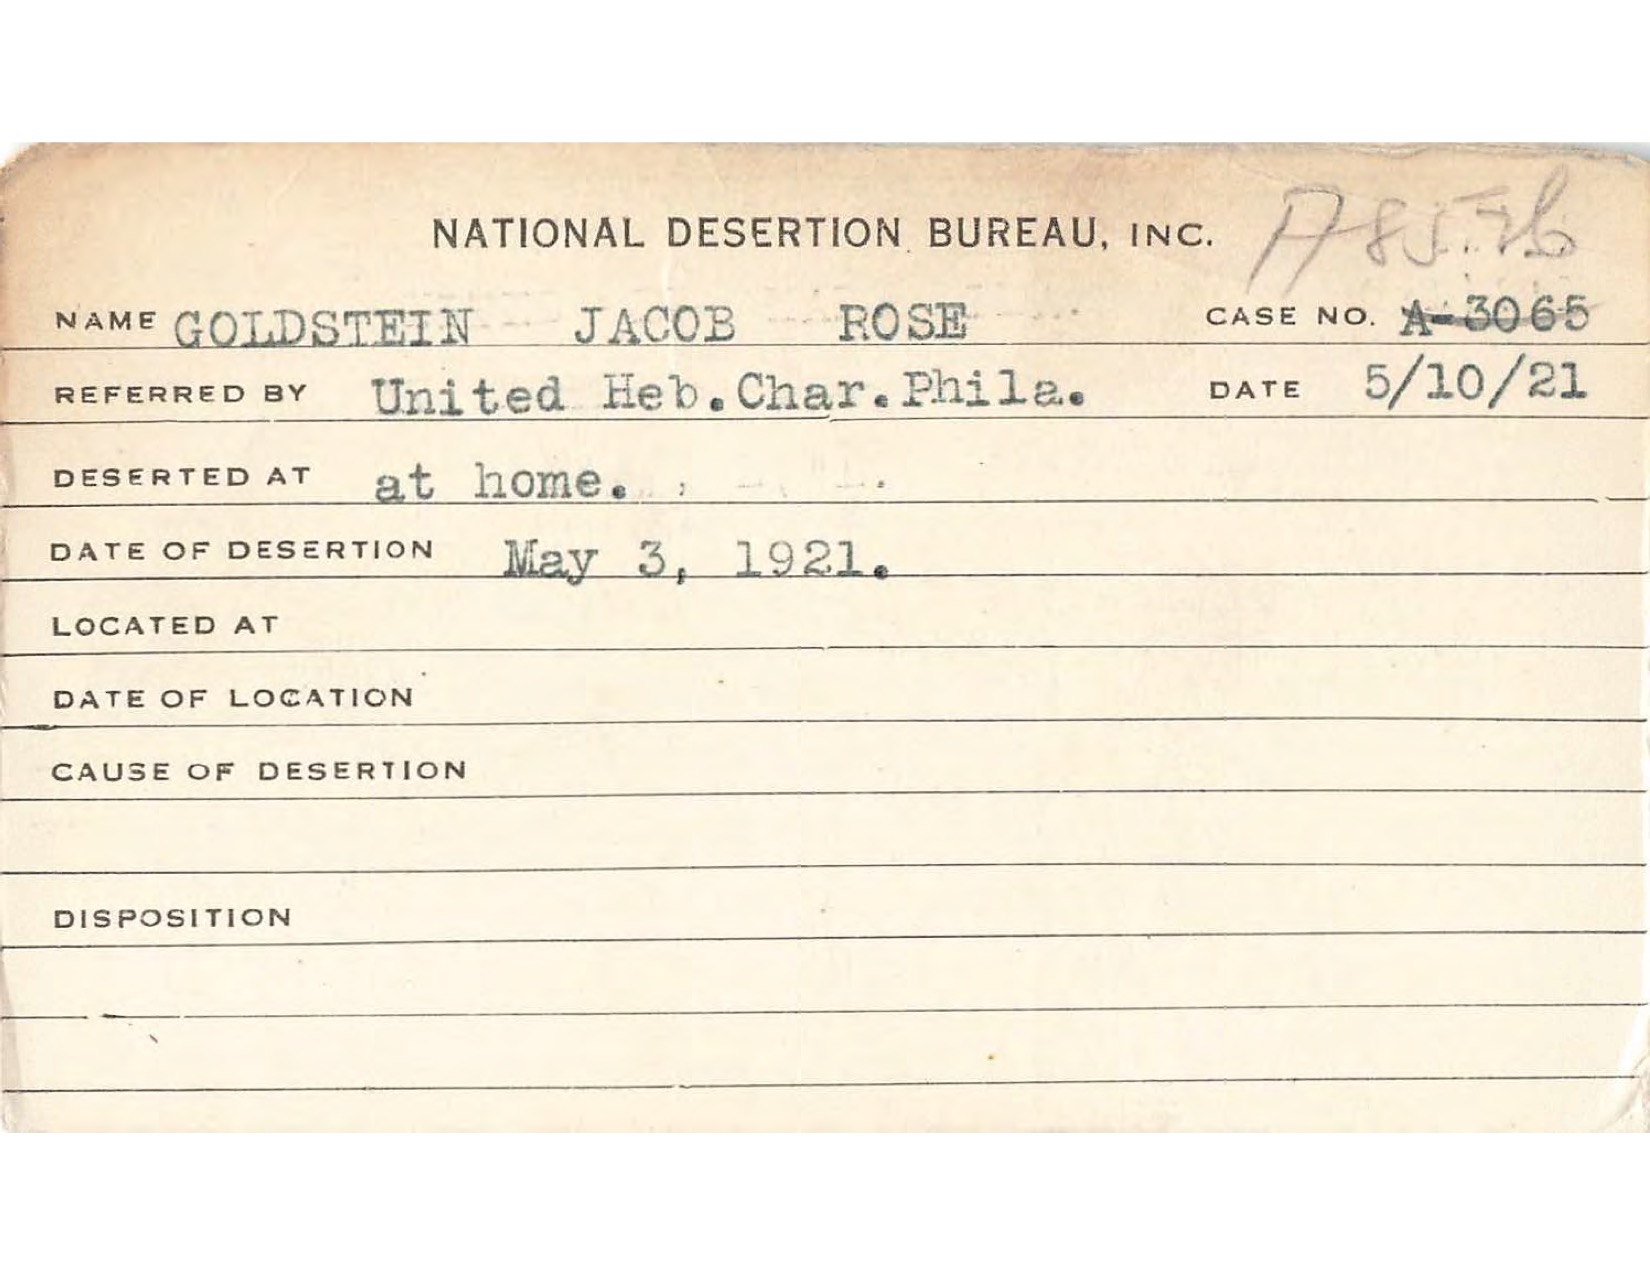 NATIONAL DESERTION BUREAU, INC. A8576
NAME GOLDSTEIN JACOB ROSE CASE NO. A-3065
REFERRED BY United Heb.Char.Phila. DATE 5/10/21
DESERTED AT at home.
DATE OF DESERTION May 3, 1921.
LOCATED AT
DATE OF LOCATION
CAUSE OF DESERTION
DISPOSITION